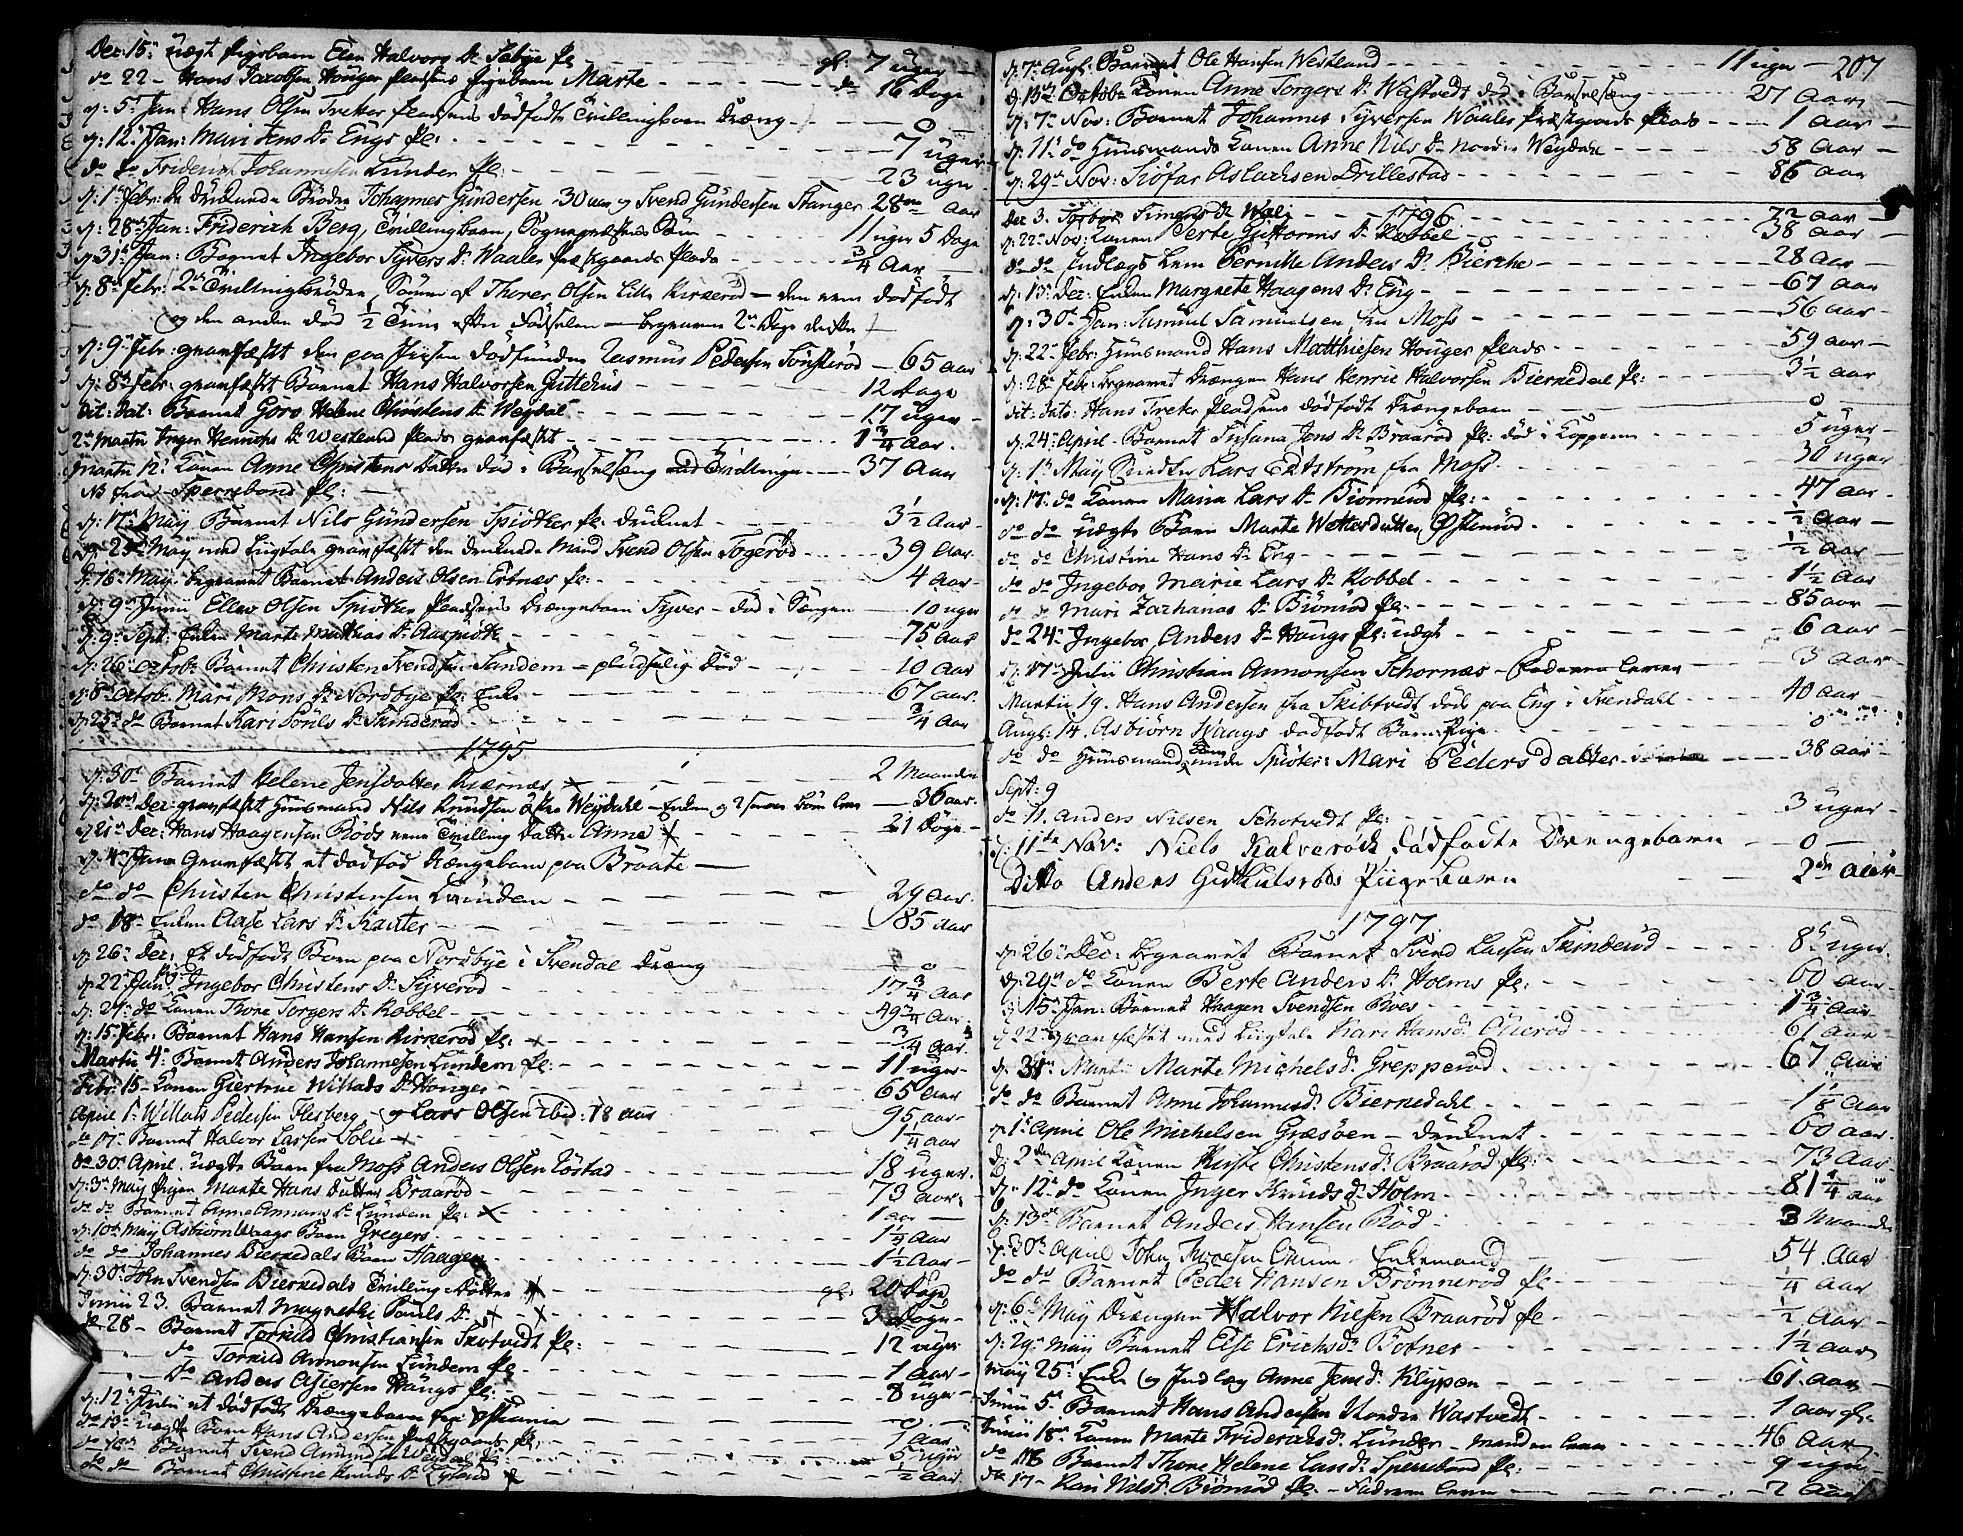 Dec: 15de uægt Pigebarn Elen Halvors Dr Sebye Pl. gl: 7 uger
do 22 - Hans Jacobsen Houger Pladsens Pigebarn Marte do 16 Dage
d: 5te Jan: Hans Olsen Treker Pladsens dødfødte Tvillingbarn Dræng 0
d: 12te Jan: Mari Jens Dr Engs Pl: 7 uger
do do Friderich Johannesen Lunden Pl: 23 uger
d: 1te Febr: De druknede Brødre Johannes Gundersen 30 aar og Svend Gundersen Stanger 28 Aar
d: 28de Jan: Friderich Berg, Tvillingbarn, Sognepræstens Søn 11 uger 5 Dage
d: 31te Jan: Barnet Ingebor Syvers Dr Waaler Præstgaards Plads 3/4 Aar
d: 8de Febr: 2de Tvillingbrødre, Sønner af Thorer Olsen Lille Kirkerød - den eene dødfødt
og den anden død 1/2 Time efter Fødselen - begraven 2de Dage derefter
d: 9de Febr: graufæstet den paa Isen dødfundne Rasmus Pedersen Sønsterød 65 aar
d: 8de Febr: graufæstet Barnet Hans Halvorsen Guttehus 12 Dage
Dit: Dat: Barnet Goro Helene Christens Dr Weydal 17 uger
2de Martii Inger Henrichs Dr Westlund Plads graufæstet 1 3/4 Aar
Martii 12: Konen Anne Christens Datter død i Barselsæng med Tvillinger 37 Aar
NB fra Sperrebond Pl:
d: 17de May Barnet Nils Gundersen Spiøtker Pl: druknet 3 1/2 Aar
d: 25de May med Liigtale graufæstet den druknede Mand Svend Olsen Togerød 39 Aar
d: 16de May begravet Barnet Anders Olsen Ertnæs Pl: 4 Aar
d: 9de Junii Ellev Olsen Spiøtker Pladsens Drængebarn Syver - død i Sængen 10 uger
d: 9de Sept: Enken Marte Mathias Dr Aaspiøtk 75 Aar
d: 26de Octob: Barnet Christen Svendsen Sandem - pludselig død 10 Aar
d: 8de Octob. Mari Mons Dr Nordbye Pl: Enke 67 aar
d: 25de do Barnet Kari Povls Dr Skinderød 3/4 Aar
1795
d: 30te Barnet Helene Jensdatter Kiærnæs 2 Maander
d: 20de Dec: graufæstet Huusmand Nils Knudsen Østre Weydahl - Enken og 2 smaae børn lever 36 aar
d: 21de Dec: Hans Haagensen Røds eene Tvilling Datter Anne 21 Døgn
d: 4de Jan: Graufæstet et dødfød Drængebarn paa Braate
do do Christen Christensen Lunden 29 Aar
do 18de Enken Aase Lars Dr Kanter 85 aar
d: 26de Dec: Et dødfødt Barn paa Nordbye i Svendal Dræng 0
d: 22de Jan: Pige Ingebor Christens Dr Syverød 17 3/4 Aar
d: 24de do Konen Thore Torgers Dr Robbel 49 3/4 Aar
d: 15de Febr: Barnet Hans Hansen Kirkerød Pl: 3/4 Aar
Martii 4de Barnet Anders Johannesen Lunden Pl: 11 uger
Febr: 15 Konen Giertrue Willads Dr Houger 65 Aar
April 1te Willads Pedersen Flesberg - og Lars Olsen ibid: 18 aar 95 aar
do 17de Barnet Halvor Larsen Solie 1 1/4 aar
do 30te April uægte Barn fra Moss Anders Olsen Lostad 18 uger
d: 3de May Pigen Marte Hans Datter Braarød 73 aar
do do Barnet Anne Amans Dr Lunden Pl: 1 aar
d: 10de May Asbiørn Waags Barn Gregers 1 1/4 Aar
do do Johannes Biernedals Barn Haagen 1 1/2 Aar
d: 30te John Svendsen Biernedals Tvilling-Datter gl: 20 Dage
Junii 23. Barnet Magrethe Pouls Dr 3 Døgn
do 28 - Barnet Torkild Christiansen Skotvedt Pl: 12 uger
do Torkild Amonsen Lunden Pl 1 aar
do Anders Asiersen Haugs Pl: 8 uger
d: 12te Julii et dødfødt Drængebarn fra 0
do 13de uægte Barn Hans Andersen Præstgaards Pl: 7 Aar
do 16de Barnet Svend Amundsen Weydal Pl: 5 uger
do do Barnet Christine Knuds Dr 1/2 Aar
207
d: 7de Augt: Barnet Ole Hansen Westlund 11 uger
d: 13de Octob: Konen Anne Torgers Dr Wastvedt død i Barselsæng 27 Aar
d: 7de Nov: Barnet Johannes Syversen Waaler Præstgaards Plads 1 aar
d: 11te do Huusmands Konen Anne Nils Dr nordre Weydahl 58 Aar
d: 29de Nov: Siøfar Aslachsen Drillestad 86 aar
1796
Dec 3. Torbor Simens Dr Wali 72 aar
d: 22de Nov: Konen Berte Guttorms Dr Robbel 38 aar
do do Indlægs Lem Pernille Anders Dr Bierche 28 aar
d: 13de Dec: Enken Margrete Haagens Dr Eng 67 aar
d: 30te Jan: Samuel Samuelsen fra Moss 56 aar
d: 22de Febr: Huusmand Hans Matthiesen Houger Plads 59 aar
d: 28de Febr: begravet Drængen Hans Henric Halvorsen Biernedal Pl: 3 1/2 aar
dit: dato: Hans Treker Pladsens dødfødt Drængebarn 0
d: 24de April - Barnet Susana Jens Dr Braarød Pl: død i Kopperne 5 uger
d: 1te May Snedker Lars Edtstrøm fra Moss 30 uger
d: 17de do Konen Maria Lars Dr Biørnerød Pl: 47 aar
do do uægte Barn Marte Wettersdatter Østenrød 1/2 aar
do do Christine Hans Dr Eng 1/2 aar
do do Ingebor Marie Lars Dr Robbel 1 1/2 Aar
do do Mari Zachariæ Dr Biørnrød Pl: 85 aar
do 24de Ingebor Anders Dr Haugs Pl: uægt 6 aar
d: 17de Julii Christian Amonsen Schornæs - Faderen lever 3 aar
Martii 19. Hans Andersen fra Skibtvedt døde paa Eng i Svendahl 40 aar
Augt: 14. Asbiørn Waags dødfødt Barn Pige 0
do do Huusmands Konen under Spiøter: Mari Pedersdatter 38 aar
Sept: 9
do 11. Anders Nilsen Schotvedt Pl: 3 uger
d: 11te Nov: Niels Kalverød dødfødte Drengebarn 0
Ditto Anders Gudhulsrøds Piigebarn 2de aar
1797
d: 26de Dec: begravet Barnet Svend Larsen Skinderød 8te uger
d: 29de do Konen Berte Anders Dr Holms Pl: 60 aar
d: 15de Jan: Barnet Haagen Svendsen Roes 1 3/4 Aar
d: 22de graufæstet med Liigtale Kari Hansdr Otterød 61 aar
d: 31te Martii Marte Michelsdr Grepperød 67 aar
do do Barnet Anne Johannesdr Biernedahl 1 1/8 Aar
d: 1te April Ole Michelsen Græsøen - druknet 60 aar
d: 2den April Konen Kirste Christensdr Braarød Pl: 73 Aar
d: 12te do Konen Inger Knudsdr Holm 81 1/4 aar
d: 13de Barnet Anders Hansen Rød 3 Maander
d: 30te April John Iversen Enkemand 54 Aar
do do Barnet Peder Hansen Brønnerød Pl 1/4 aar
d: 6te May Drængen Halvor Nilsen Braarød Pl 1/2 Aar
d: 29de May Barnet Else Erichsdr Botner 1 1/2 aar
May 25de Enke og Indlæg Anne Jensdr Klypen 61 Aar
Junii 5te Barnet Hans Andersen Nordre Wastvedt 1 aar gl:
Junii 18de Konen Marte Friderichsdr Lunder - Manden lever 46 aar
do 18 Barnet Thore Helene Larsdr Sperrebond Pl: 9 uger
do 17 - Kari Nilsdr Biørnrød Pl: - Faderen lever 2 Aar